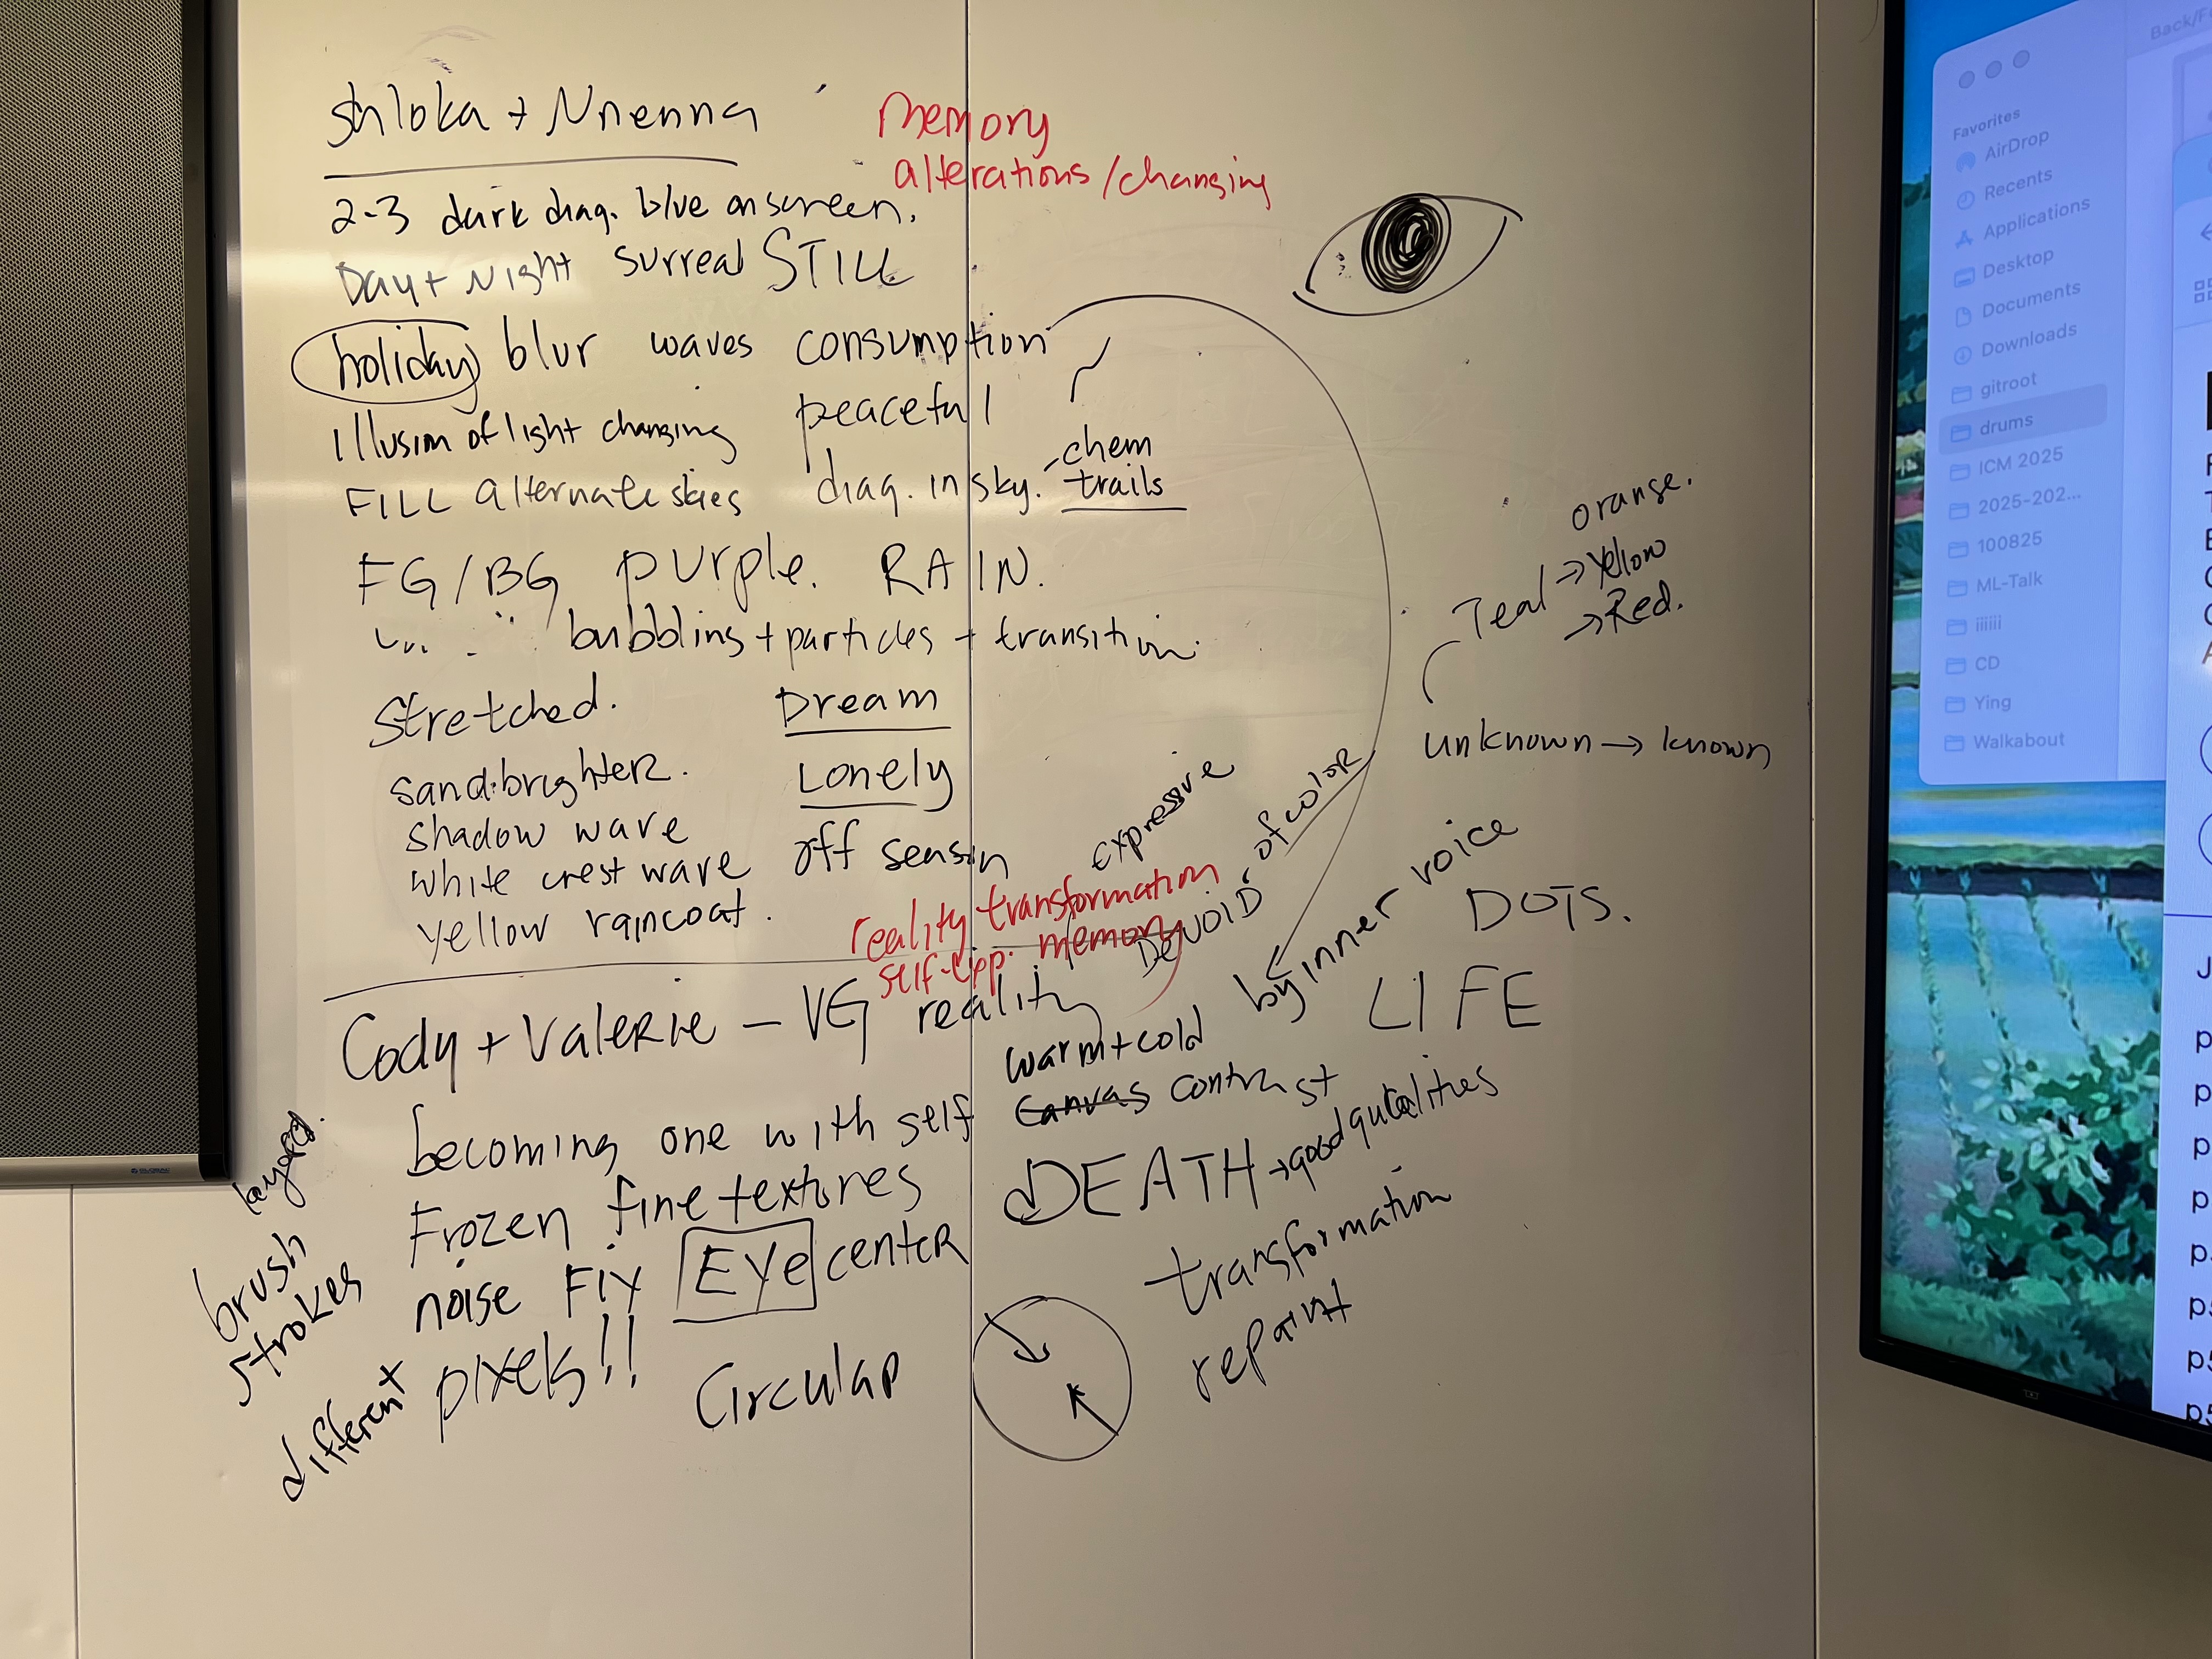 Shloka + Nnenna
memory
alterations/changing
2-3 dark diag. blue on screen.
Day + Night surreal STILL
holiday blur waves consumption
peaceful
Illusion of light changing
chem
trails
FILL alternate skies diag. in sky.
FG/BG purple. RAIN.
bubbling + particles + transition.
Stretched. Dream
sand:brighter. Lonely
shadow wave
white crest wave off season
yellow raincoat.
orange.
Teal → Yellow
→ Red.
unknown → known
expressive
DEVOID of color
reality transformation
self-exp. memory
by inner voice
DOTS.
LIFE
Cody + Valerie - VG reality
warm + cold
canvas contrast
becoming one with self
DEATH → good qualities
Frozen fine textures
noise FIX Eye center
pixels!!
Circular
transformation
repaint
layered.
brush
strokes
different
Back/F
Favorites
AirDrop
Recents
Applications
Desktop
Documents
Downloads
gitroot
drums
ICM 2025
2025-202...
100825
ML-Talk
iiiiii
CD
Ying
Walkabout